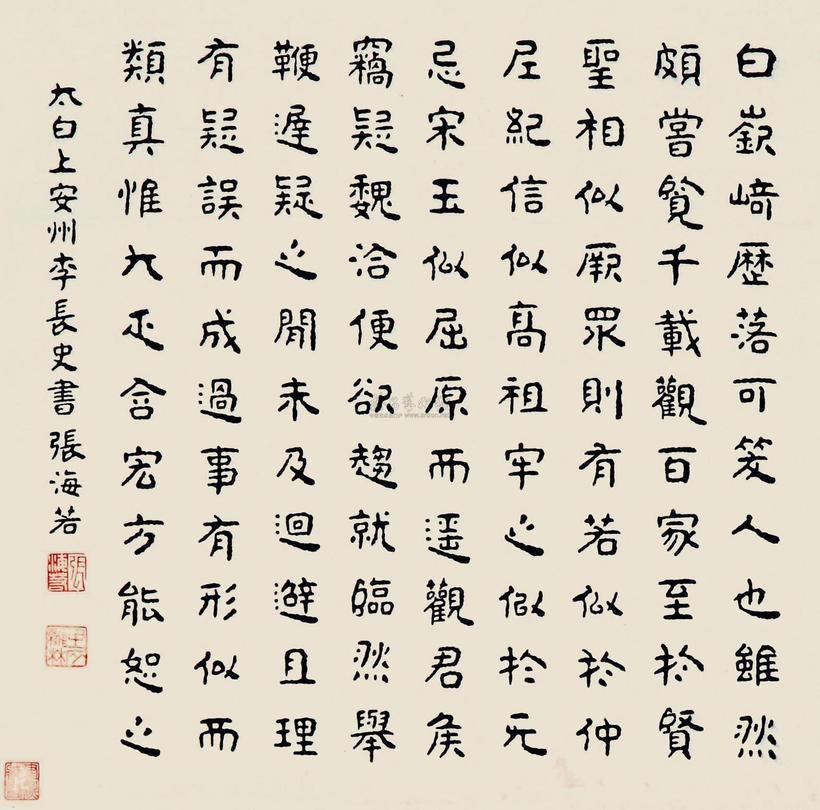 白嶔﨑歷落可笑人也雖然
頗嘗覽千載觀百家至於賢
聖相似厥眾則有若似於仲
尼紀信似高祖牢之似於无
忌宋玉似屈原而遥觀君侯
竊疑魏洽便欲趨就臨然舉
鞭遲疑之間未及迴避且理
有疑誤而成過事有形似而
類真惟大疋含宏方能恕之
太白上安州李長史書張海若